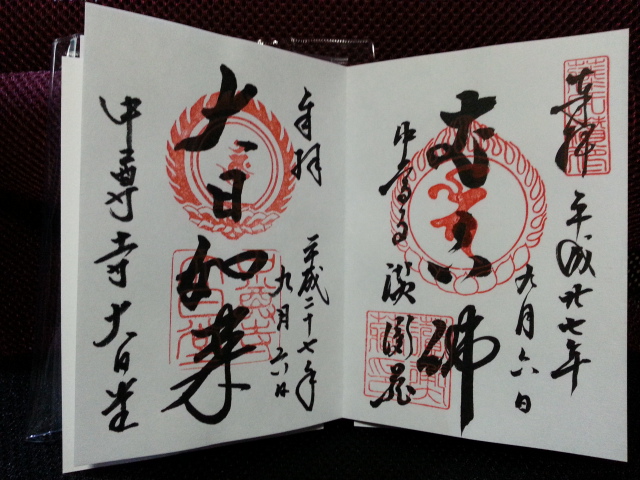 奉拝
平成廿七年
九月六日
中尊寺 讃衡蔵
奉拝
平成二十七年
九月六日
大日如来
中尊寺大日堂